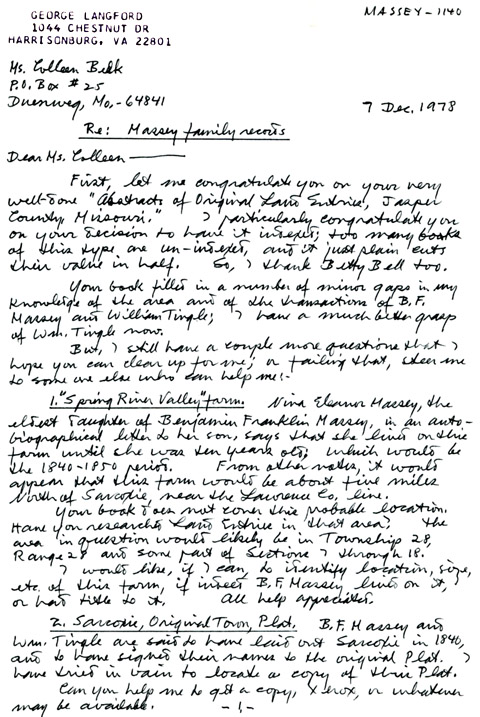 GEORGE LANGFORD
1044 CHESTNUT DR
HARRISONBURG, VA 22801
MASSEY-1140
Ms. Colleen Belk
P.O. Box #25
Duenweg, Mo.-64841
7 Dec. 1978
Re: Massey family records
Dear Ms. Colleen —
First, let me congratulate you on your very
well-done "Abstracts of Original Land Entries, Jasper
County, Missouri." I particularly congratulate you
on your decision to have it indexed; too many books
of this type are un-indexed, and it just plain cuts
their value in half. So, I thank Betty Bell too.
Your book filled in a number of minor gaps in my
knowledge of the area and of the transactions of B.F.
Massey and William Tingle; I have a much better grasp
of Wm. Tingle now.
But, I still have a couple more questions that I
hope you can clear up for me; or failing that, steer me
to some one else who can help me:-
1. "Spring River Valley" farm. Nina Eleanor Massey, the
eldest daughter of Benjamin Franklin Massey, in an auto-
biographical letter to her son, says that she lived on this
farm until she was ten years old; which would be
the 1840-1850 period. From other notes, it would
appear that this farm would be about five miles
North of Sarcoxie, near the Lawrence Co. line.
Your book does not cover this probable location.
Have you researched Land Entries in that area? The
area in question would likely be in Township 28,
Range 28 and some part of Sections 7 through 18.
I would like, if I can, to identify location, size,
etc. of this farm, if indeed B.F. Massey lived on it,
or had title to it. All help appreciated.
2. Sarcoxie, Original Town, Plat. B.F. Massey and
Wm. Tingle are said to have laid out Sarcoxie in 1840,
and to have signed their names to the original Plat. I
have tried in vain to locate a copy of this Plat.
Can you help me to get a copy, Xerox, or whatever
may be available. -1-